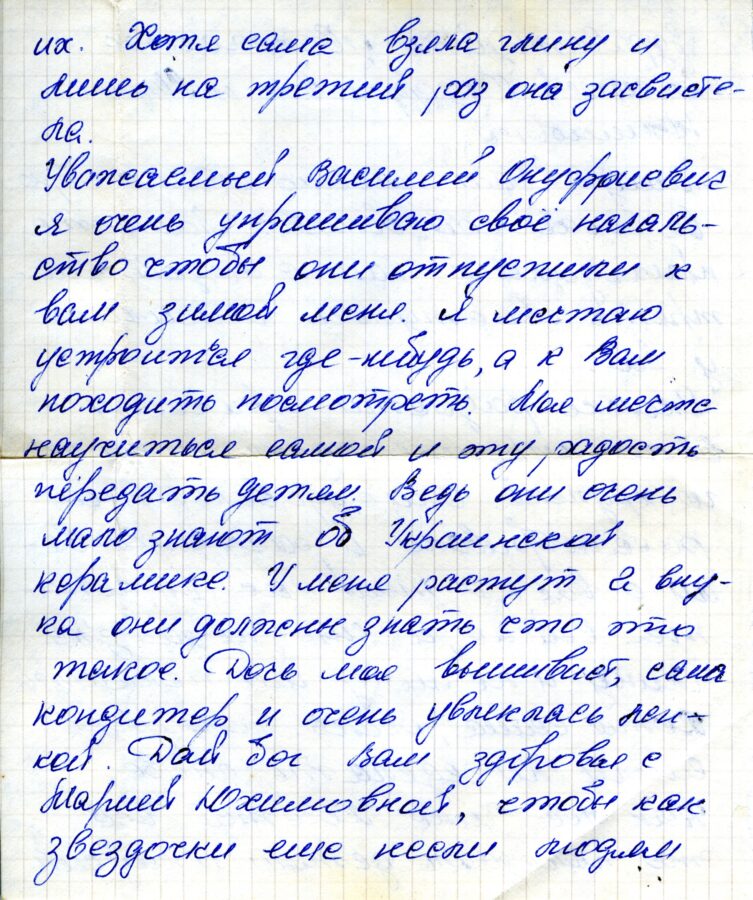 их. Хотя сама взяла глину и
лишь на третий раз она засвисте-
ла.
Уважаемый Василий Онуфриевич
я очень упрашиваю своё началь-
ство чтобы они отпустили к
вам зимой меня. Я мечтаю
устроиться где-нибудь, а к Вам
походить посмотреть. Моя мечта
научиться самой и эту радость
передать детям. Ведь они очень
мало знают об Украинской
керамике. У меня растут 2 вну-
ка они должны знать что это
такое. Дочь моя вышивает, сама
кондитер и очень увлеклась леп-
кой. Дай бог Вам здоровья с
Марией Юхимовной, чтобы как
звездочки еще несли людям